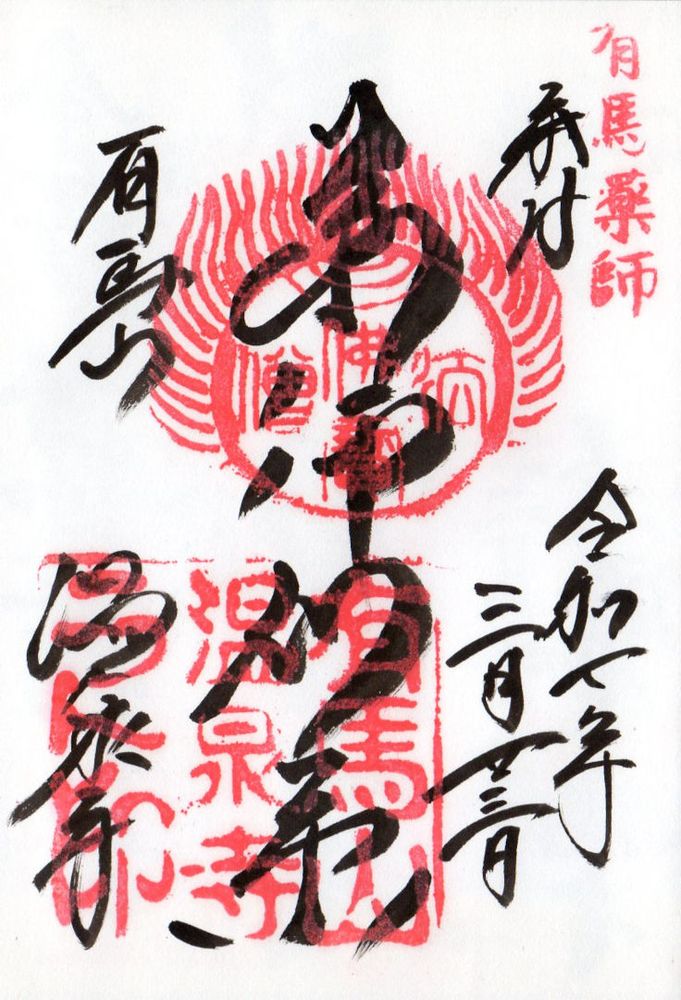 有馬藥師
奉拝
令和七年
三月廿三日
薬師如来
佛法僧寶
有馬山
温泉寺
有馬山
温泉寺